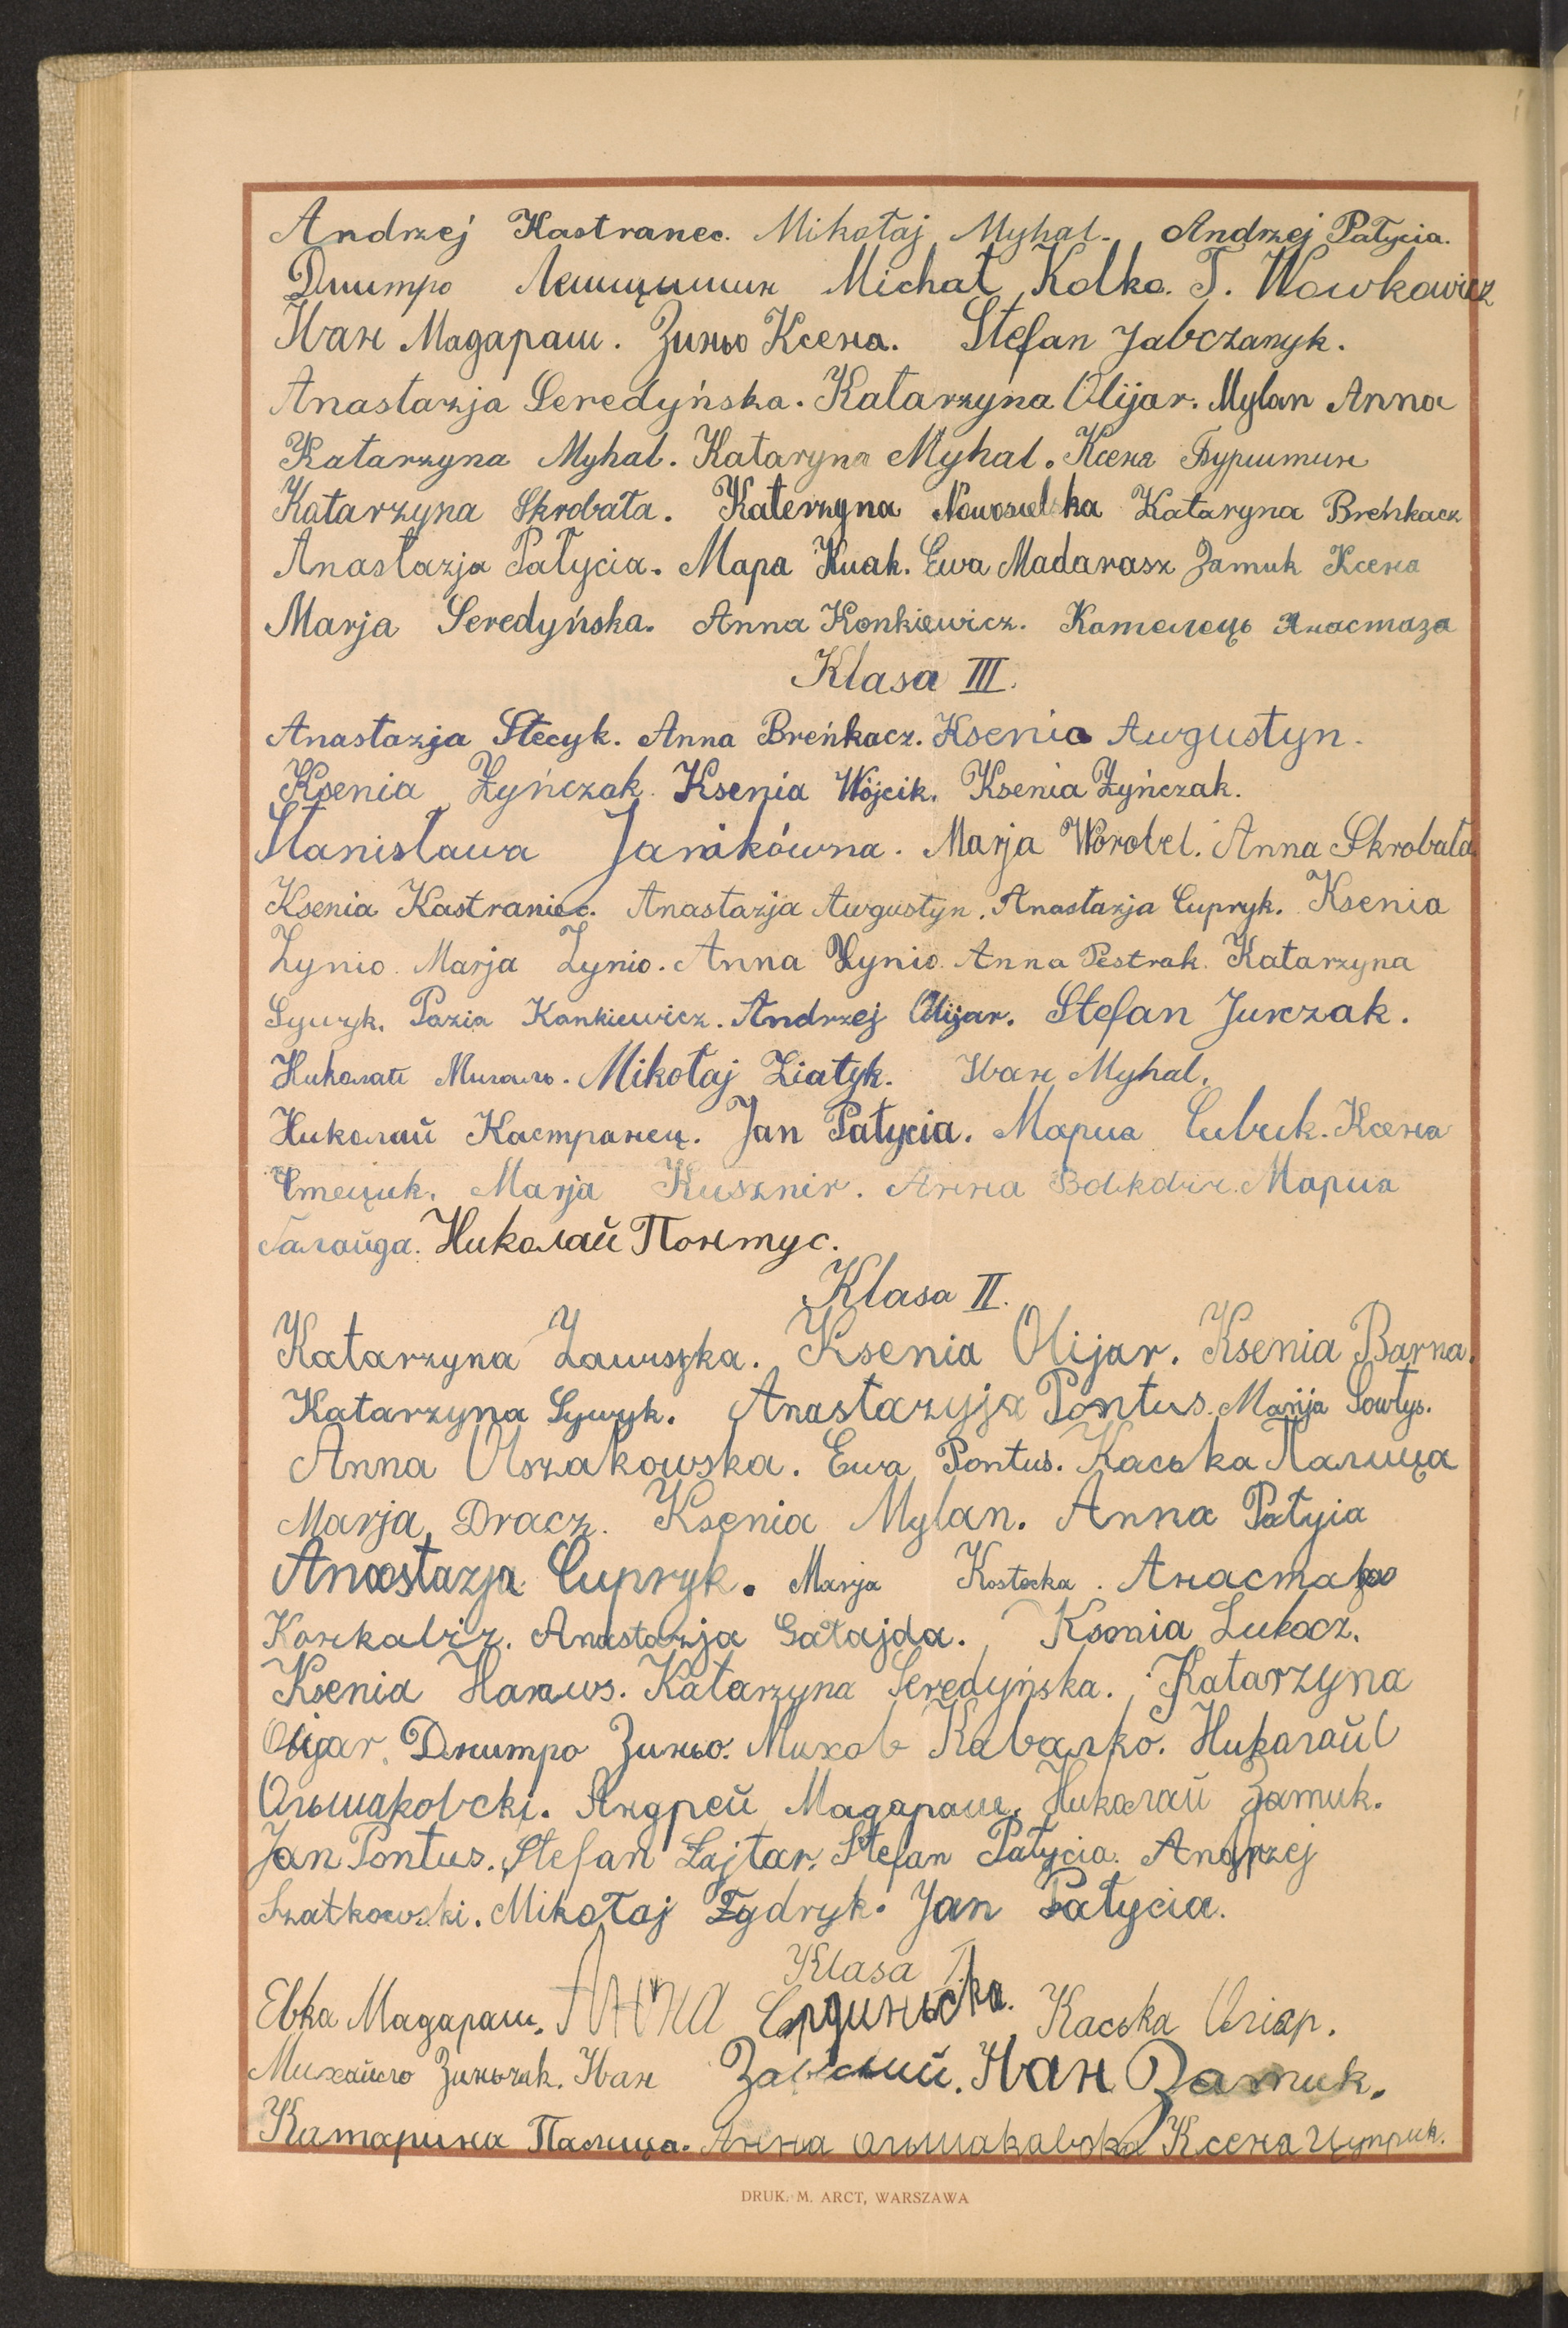 Andrzej Kastranec. Mikołaj Myhal. Andrzej Pałycia.
Дмитро Лешцишин Michał Kolko. T. Wowkowicz
Иван Мадараш. Зиньо Ксена. Stefan Jabczanyk.
Anastazja Seredyńska. Katarzyna Olijar. Mylan Anna
Katarzyna Myhal. Kataryna Myhal. Ксена Бурштин
Katarzyna Skrobała. Katerzyna Nowosielska Kataryna Breńkacz
Anastazja Pałycia. Мара Киак. Ewa Madarasz Замик Ксена
Marja Seredyńska. Anna Konkiewicz. Анастаза
Klasa III.
Anastazja Stecyk. Anna Breńkacz. Ksenia Augustyn.
Ksenia Zyńczak. Ksenia Wójcik. Ksenia Zyńczak.
Stanisława Janikówna. Marja Worobel. Anna Skrobała
Ksenia Kastraniec. Anastazja Augustyn. Anastazja Cupryk. Ksenia
Zynio. Marja Zynio. Anna Zynio. Anna Pestrak. Katarzyna
Sywyk. Pazia Konkiewicz. Andrzej Olijar. Stefan Jurczak.
Николай Мигаль. Mikołaj Ziatyk. Иван Myhal.
Николай Кастранец. Jan Pałycia. Мариа Сивик. Ксена
Стецик. Marja Kusznir. Анна Мариа
Галайда. Николай Понтус.
Klasa II.
Katarzyna Zawiszka. Ksenia Olijar. Ksenia Barna.
Katarzyna Sywyk. Anastazyja Pontus. Marija Sowtys.
Anna Olszakowska. Ewa Pontus. Каська Палица
Marja Dracz. Ksenia Mylan. Anna Pałyia
Anastazja Cupryk. Marja Kostecka. Анастаза
Анastazja Gałajda. Ksenia Lukacz.
Ksenia Haraws. Katarzyna Seredyńska. Katarzyna
Olijar. Дмитро Зиньо. Михов Кавалко. Николай
Ольшаковскі. Андрей Мадараш. Николай Замик.
Jan Pontus. Stefan Łajtar. Stefan Pałycia. Andrzej
Szatkowski. Mikołaj Fydryk. Jan Pałycia.
Klasa I.
Евка Мадараш. Анна Каська Оліар.
Михайло Зиньчак. Иван Иван Замик.
Катарина Палица. Анна Ольшаковска Ксена Цуприк.
DRUK. M. ARCT, WARSZAWA